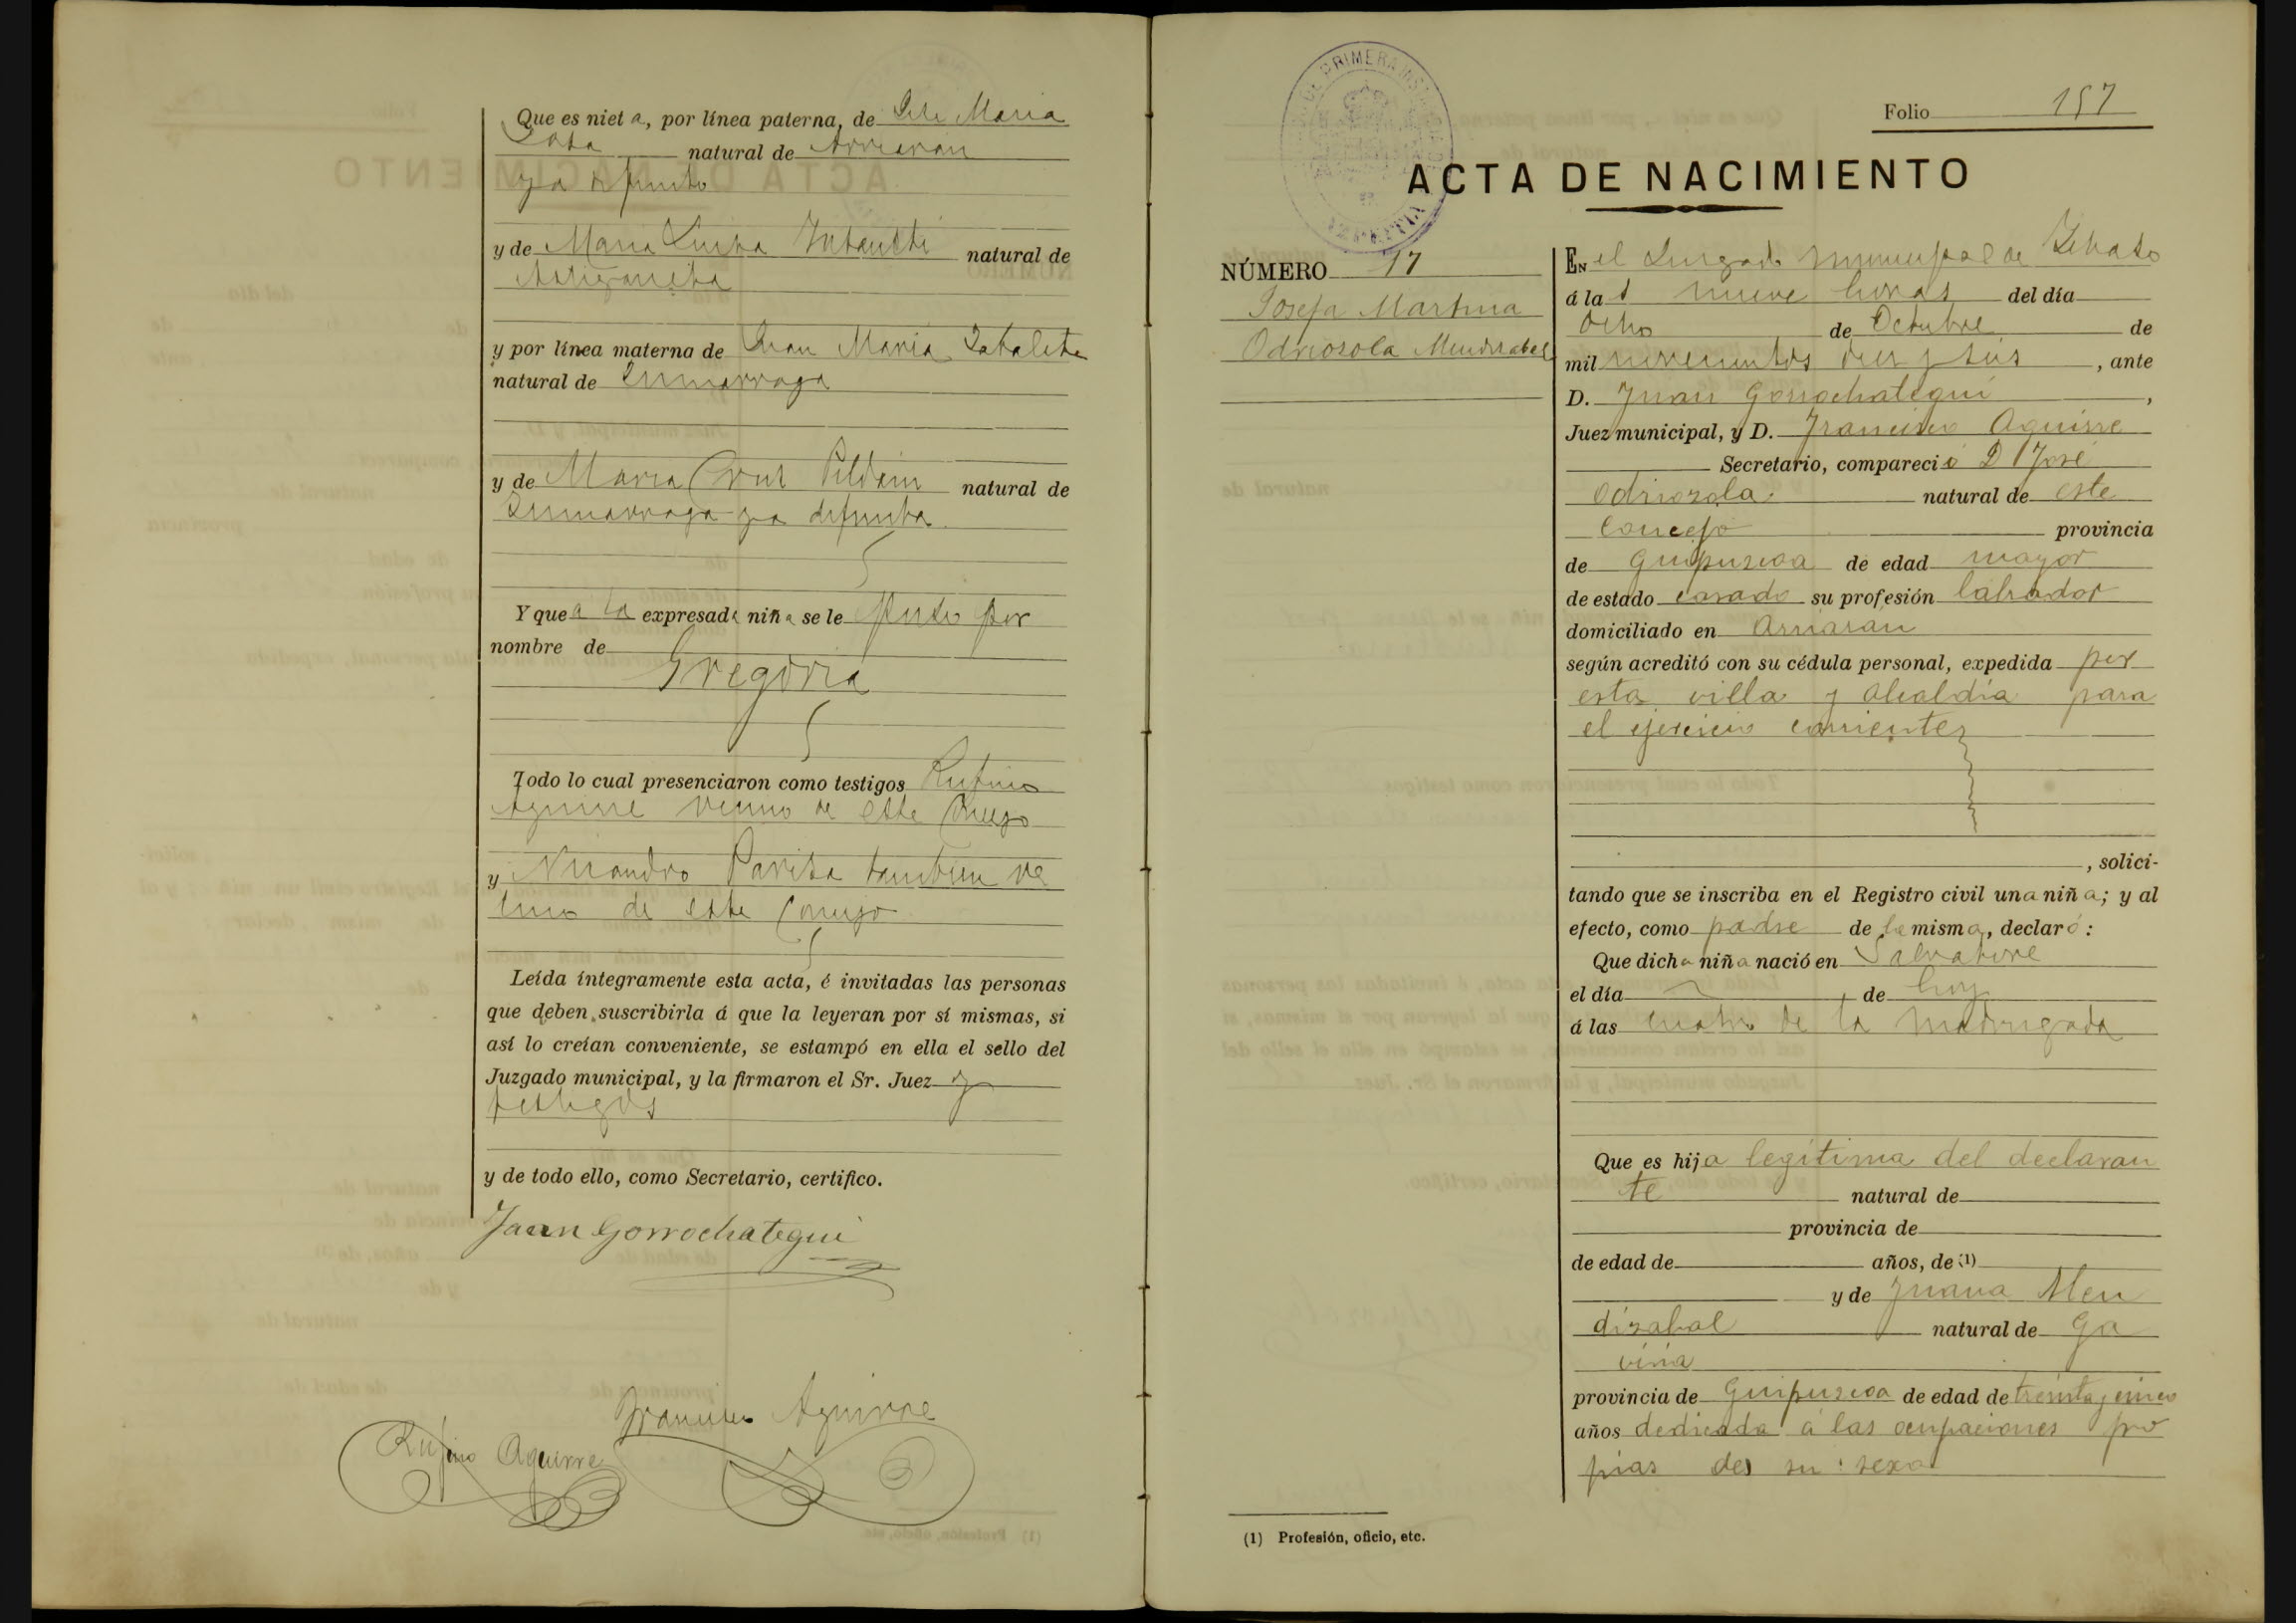 Que es nieta, por línea paterna, de José Maria
natural de Arriaran
ya difunto
y de Maria Luisa natural de
Astigarreta
y por línea materna de Juan Maria Zabaleta
natural de Zumarraga
y de Maria Cruz Pildain natural de
Zumarraga ya difunta
Y que a la expresada niña se le puso por
nombre de
Gregoria
Todo lo cual presenciaron como testigos Rufino
Aguirre vecino de este Concejo
y Nicandro tambien ve
cino de este Concejo
Leída íntegramente esta acta, é invitadas las personas
que deben suscribirla á que la leyeran por sí mismas, si
así lo creían conveniente, se estampó en ella el sello del
Juzgado municipal, y la firmaron el Sr. Juez y
testigos
y de todo ello, como Secretario, certifico.
Juan Gorrochategui
Francisco Aguirre
Rufino Aguirre
Folio 157
ACTA DE NACIMIENTO
NÚMERO 17
Josefa Martina
Odriozola Mendizabal
EN el Juzgado municipal de
á las nueve horas del día
ocho de Octubre de
mil novecientos diez y seis, ante
D. Juan Gorrochategui,
Juez municipal, y D. Francisco Aguirre
Secretario, compareció D José
Odriozola natural de este
Concejo provincia
de Guipuzcoa de edad mayor
de estado casado su profesión labrador
domiciliado en Arriaran
según acreditó con su cédula personal, expedida por
esta villa y Alcaldía para
el ejercicio corriente
, solici-
tando que se inscriba en el Registro civil una niña; y al
efecto, como padre de la misma, declaró:
Que dicha niña nació en Salvatore
el día de hoy
á las cuatro de la madrugada
Que es hija legítima del declaran
te natural de
provincia de
de edad de años, de (1)
y de Juana Men
dizabal natural de Ga
viria
provincia de Guipuzcoa de edad de treinta y cinco
años dedicada á las ocupaciones pro
pias de su sexo
(1) Profesión, oficio, etc.